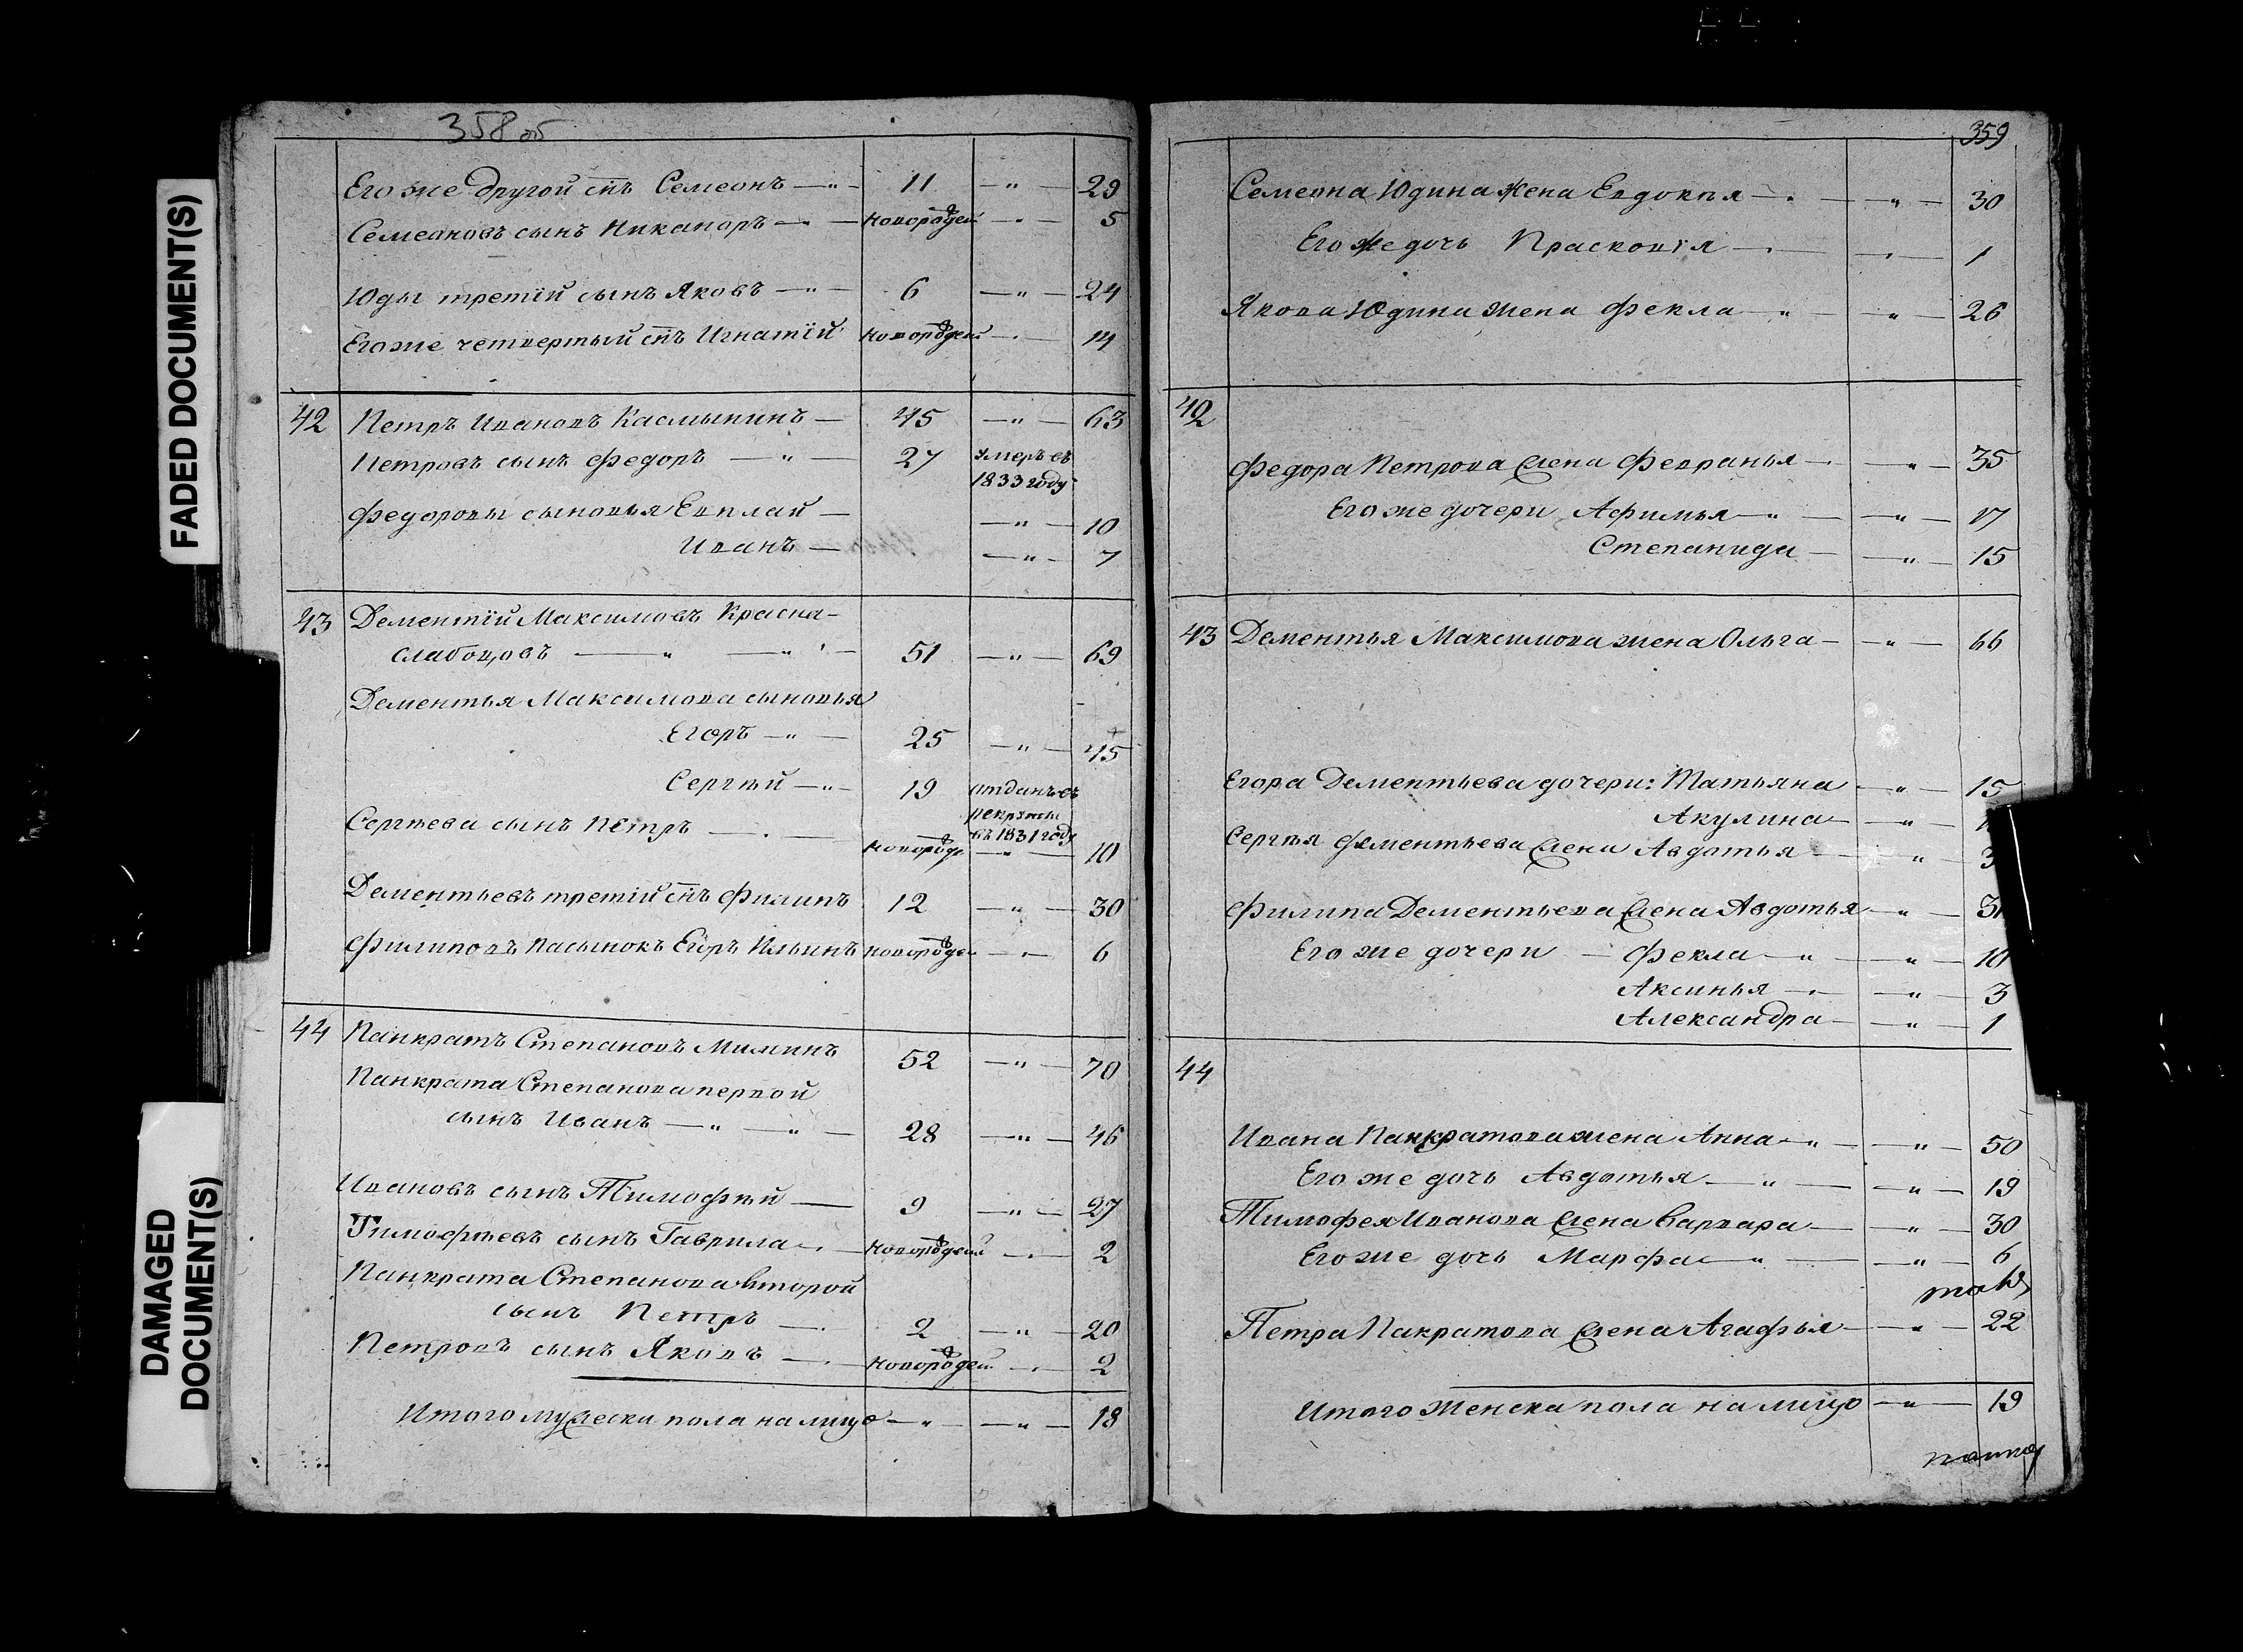 FADED DOCUMENT(S)
DAMAGED DOCUMENT(S)
358 об
Его же другой снъ Семеонъ — " — 11 — " — 29
Семеоновъ сынъ Никаноръ — " — новорожден — " — 5
Юды третій сынъ Яковъ — " — 6 — " — 24
Его же четвертый снъ Игнатій новорожден — " — 14
42 Петръ Ивановъ Касмынинъ — 45 — " — 63
Петровъ сынъ Федоръ — " — 27 умеръ въ
1833 году
Федоровы сыновья Евплай — — " — 10
Иванъ — — " — 7
43 Дементій Максимовъ Красна-
слабоцовъ — " — " — 51 — " — 69
Дементья Максимова сыновья
Егоръ — " — 25 — " — 45
Сергѣй — " — 19 отданъ въ
рекруты
въ 1831 году
Сергѣева сынъ Петръ — " — новорожде — " — 10
Дементьевъ третій снъ Филипъ 12 — " — 30
Филиповъ пасынокъ Егоръ Ильинъ новорожден — " — 6
44 Панкратъ Степановъ Миминъ 52 — " — 70
Панкрата Степанова первой
сынъ Иванъ — " — " — 28 — " — 46
Ивановъ сынъ Тимофѣй — 9 — " — 27
Тимофѣевъ сынъ Гаврила — " — новорожден — " — 2
Панкрата Степанова второй
сынъ Петръ — 2 — " — 20
Петровъ сынъ Яковъ — " — новорожден — " — 2
Итого мужеска пола на лицо — " — — " — 18
359
Семеона Юдина жена Евдокѣя — " — — " — 30
Его же дочь Прасковія — " — — " — 1
Якова Юдина жена Фекла — " — — " — 26
42
Федора Петрова жена Февранья — " — — " — 35
Его же дочери Афимья — " — — " — 17
Степанида — — " — 15
43 Дементья Максимова жена Ольга — — " — 66
Егора Дементьева дочери: Татьяна — " — 15
Акулина — — " —
Сергѣя Дементьева жена Авдотья — — " — 3
Филипа Дементьева жена Авдотья — " — 3
Его же дочери — Фекла — " — — " — 10
Аксинья — " — — " — 3
Александра — — " — 1
44
Ивана Панкратова жена Анна — " — — " — 50
Его же дочь Авдотья — " — — " — 19
Тимофея Иванова жена Варвара — — " — 30
Его же дочь Марфа — " — — " — 6
Петра Пакратова жена Агафья — — " — 22
Итого женска пола на лицо — " — 19